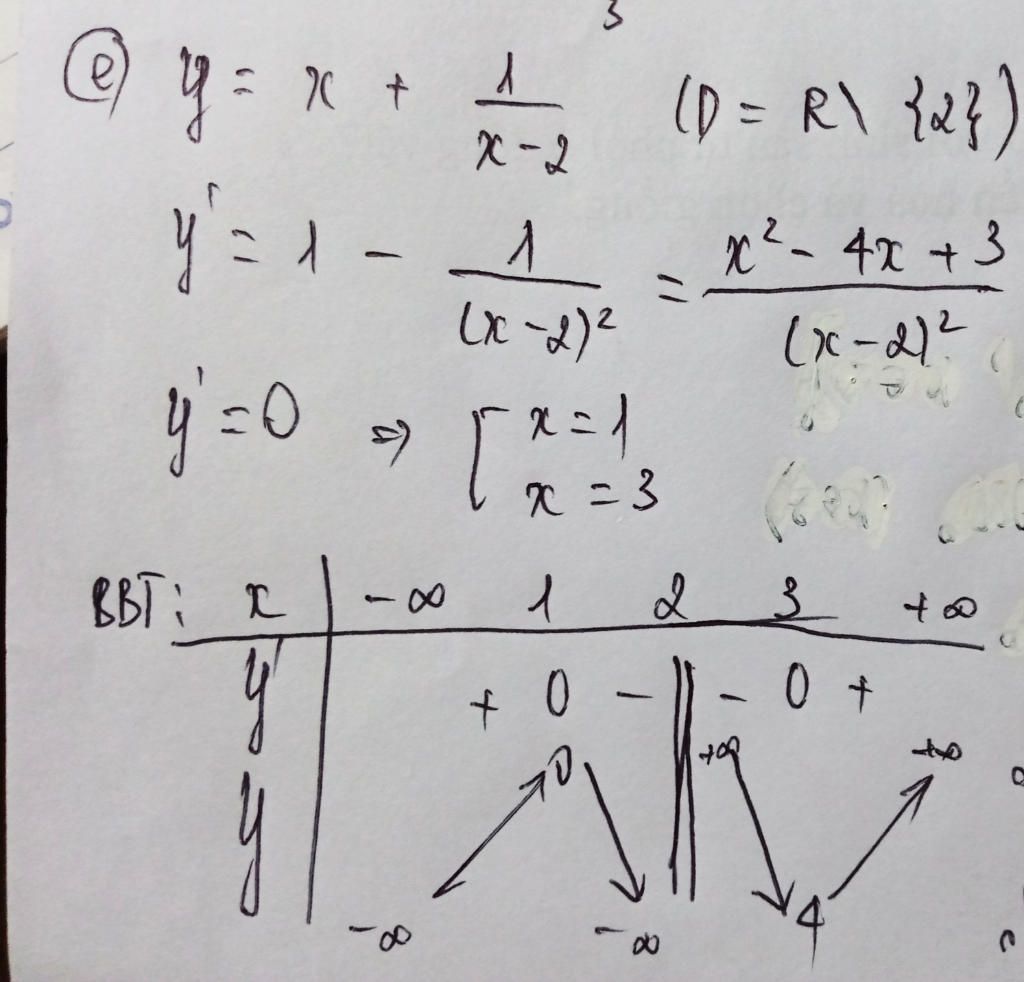 3
e) y = x + 1/(x-2) (D = R\ {2})
y' = 1 - 1/(x-2)² = (x² - 4x + 3)/(x-2)²
y' = 0 => [ x = 1
x = 3
BBT: x | -∞ 1 2 3 +∞
y' + 0 - || - 0 +
0 +∞ +∞
y
-∞ -∞ 4